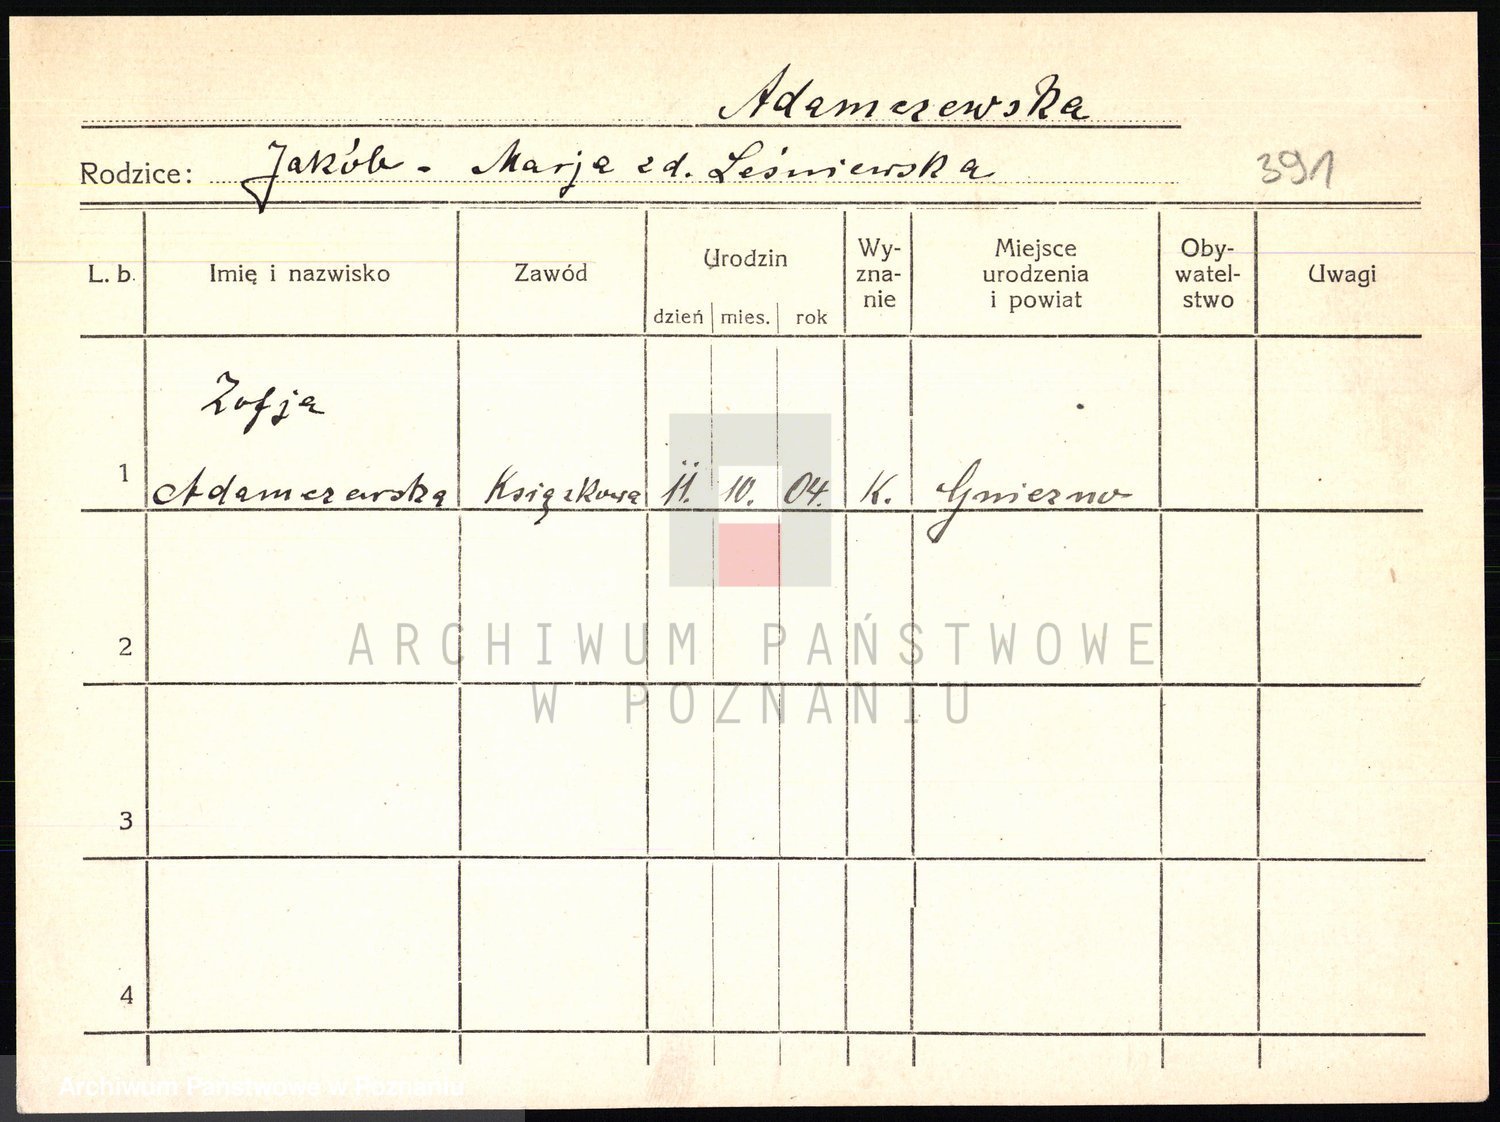 Adamczewska
Rodzice: Jakób - Marja zd. Leśniewska 391
L. b. Imię i nazwisko Zawód Urodzin dzień mies. rok Wy-zna-nie Miejsce urodzenia i powiat Oby-watel-stwo Uwagi
Zofja
1 Adamczewska Książkowa 11. 10. 04. K. Gniezno
2
ARCHIWUM PAŃSTWOWE
W POZNANIU
3
4
Archiwum Państwowe w Poznaniu